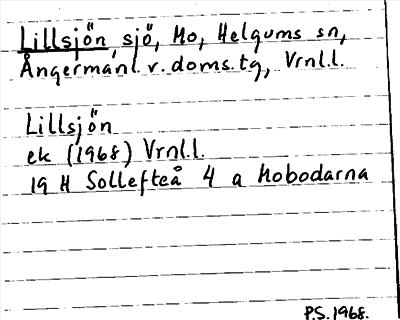 Lillsjön, sjö, Mo, Helgums sn,
Ångermanl. v. doms.tg, Vrnl.l.
Lillsjön
ek (1968) Vrnl.l.
19 H Sollefteå 4 a Mobodarna
P.S. 1968.